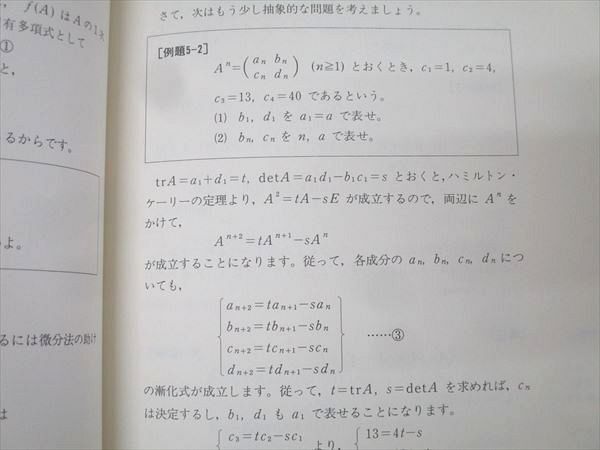 f(A) は A の 1 次
有多項式として
①
と,
るからです。
よ。
るには微分法の助け
は
さて,次はもう少し抽象的な問題を考えましょう。
[例題5-2]
Aⁿ=(aₙ bₙ
cₙ dₙ) (n≧1) とおくとき, c₁=1, c₂=4,
c₃=13, c₄=40 であるという。
(1) b₁, d₁ を a₁=a で表せ。
(2) bₙ, cₙ を n, a で表せ。
trA=a₁+d₁=t, detA=a₁d₁−b₁c₁=s とおくと,ハミルトン・
ケーリーの定理より, A²=tA−sE が成立するので,両辺に Aⁿ を
かけて,
Aⁿ⁺²=tAⁿ⁺¹−sAⁿ
が成立することになります。従って,各成分の aₙ, bₙ, cₙ, dₙ につ
いても,
aₙ₊₂=taₙ₊₁−saₙ
bₙ₊₂=tbₙ₊₁−sbₙ
cₙ₊₂=tcₙ₊₁−scₙ
dₙ₊₂=tdₙ₊₁−sdₙ
……③
の漸化式が成立します。従って, t=trA, s=detA を求めれば, cₙ
は決定するし, b₁, d₁ も a₁ で表せることになります。
c₃=tc₂−sc₁ より, 13=4t−s